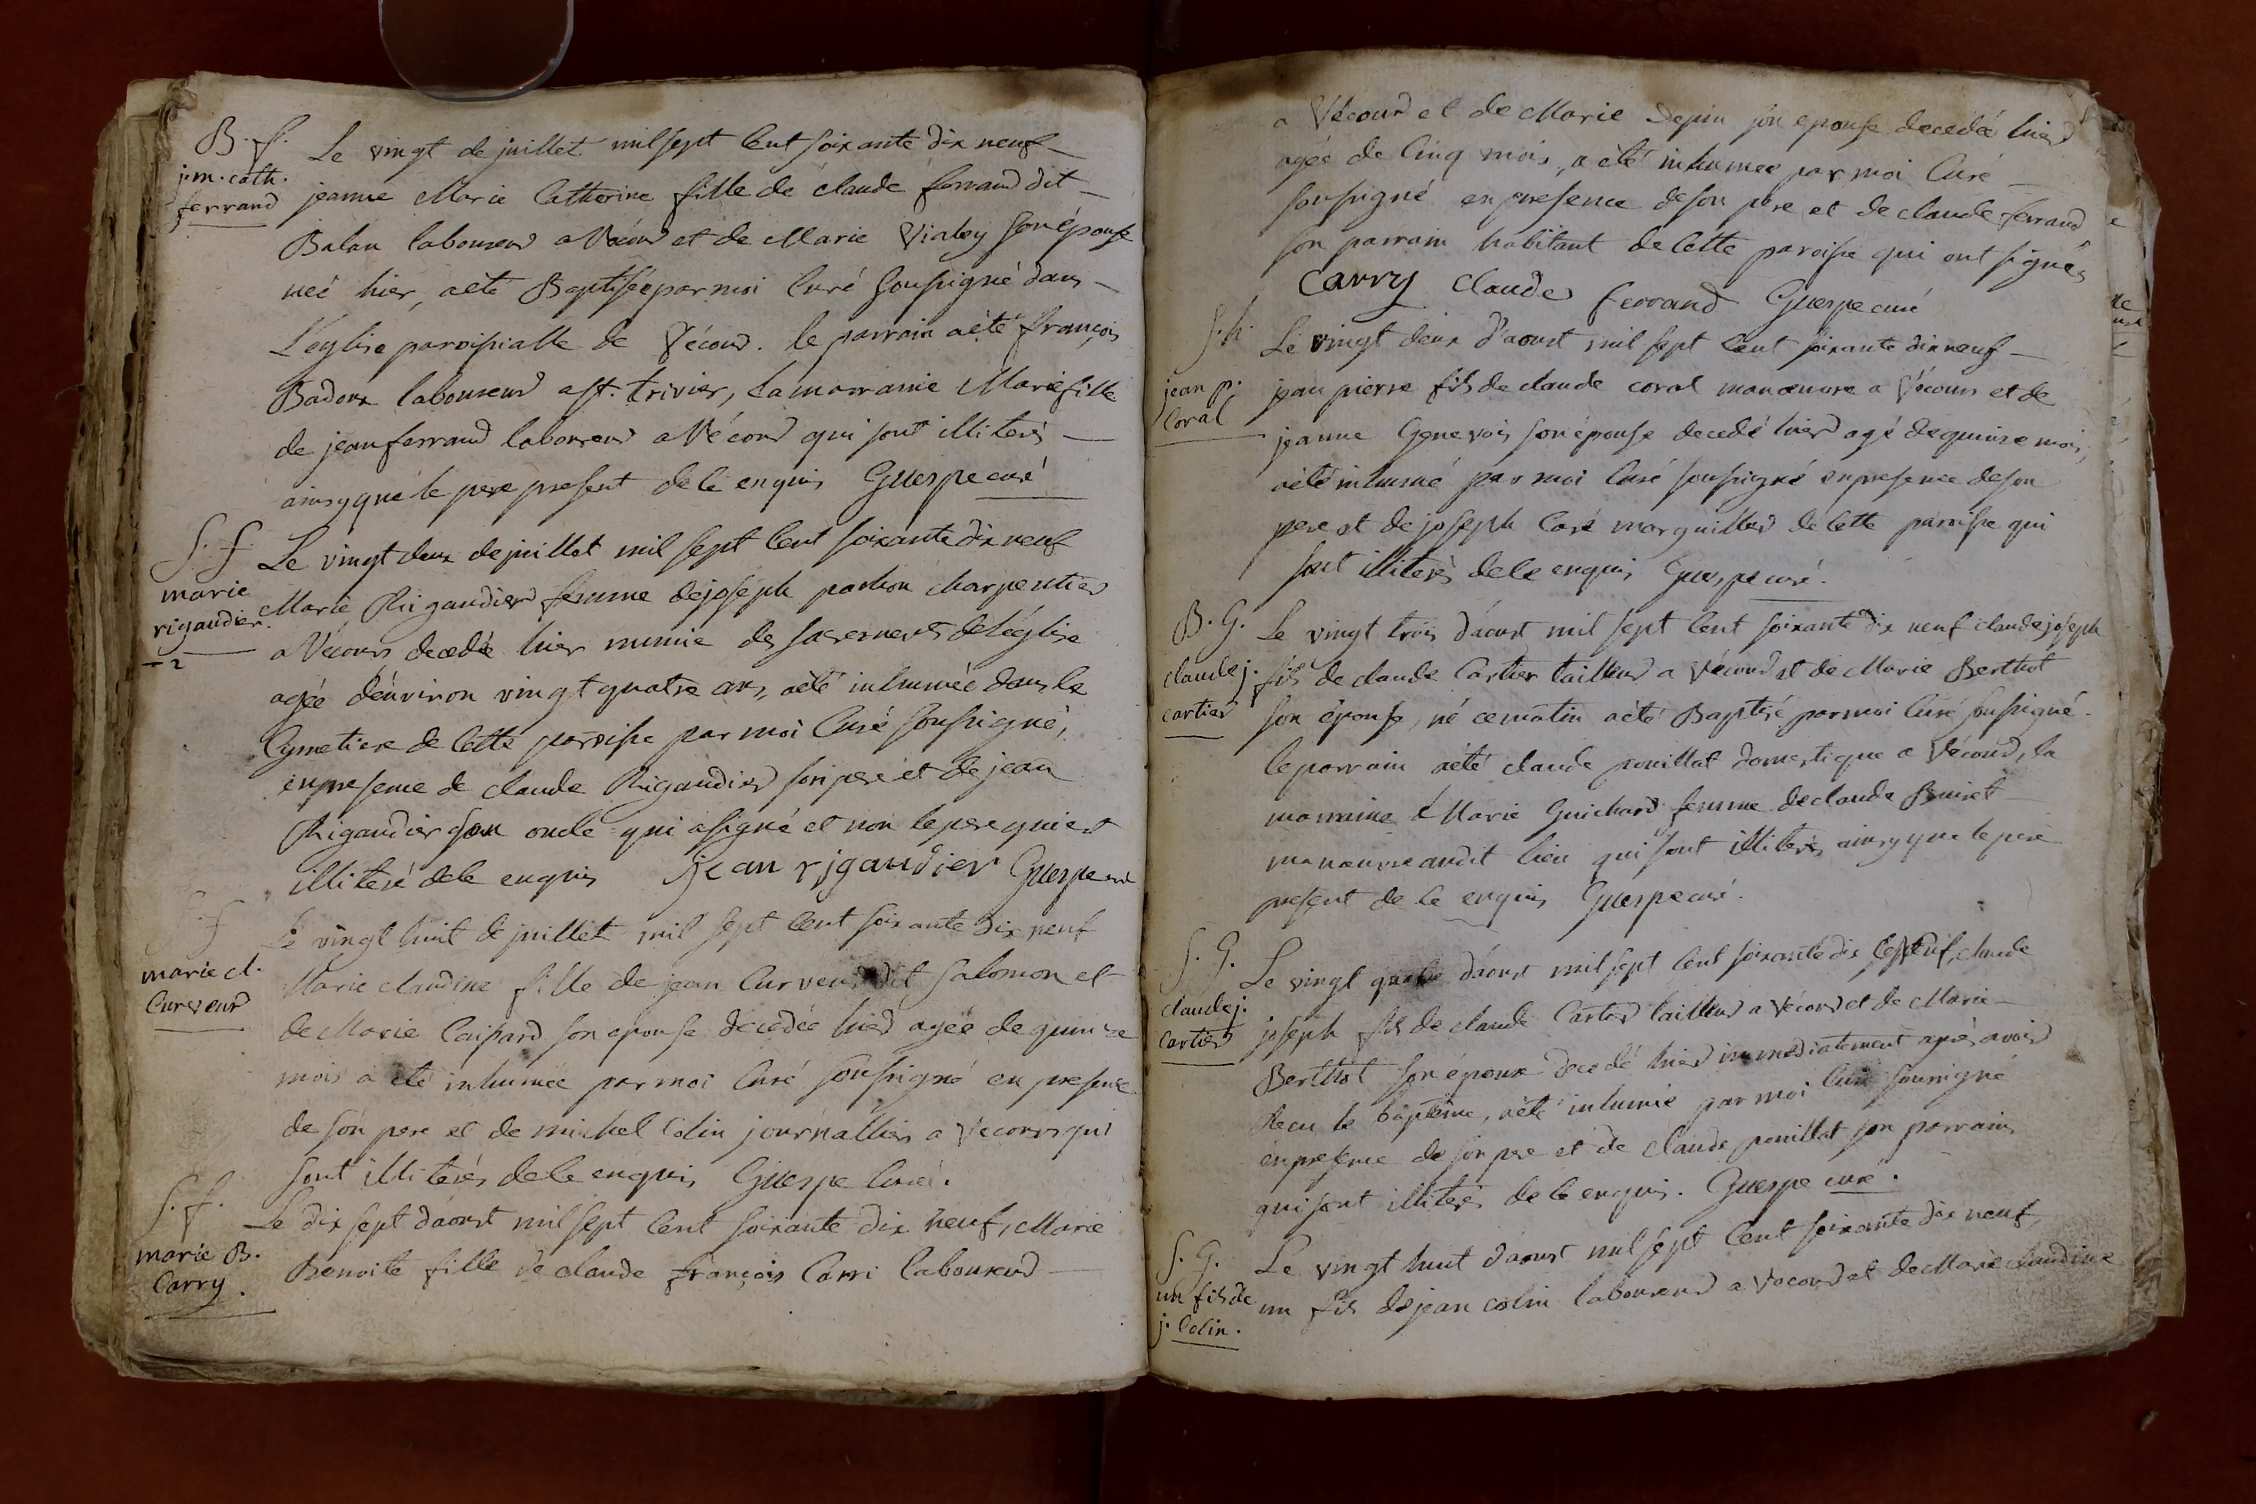 B. f.
j.m. cath.
ferrand
Le vingt de juillet mil sept cent soixante dix neuf
jeanne Marie Catherine fille de claude ferrand dit
Balan laboureur a Vécour et de Marie Vialey son épouse
neé hier, a eté Baptiseé par moi Curé soussigné dans
L'eglise paroissialle de Vécour. le parrain a eté françois
Badoux laboureur a st. trivier, la marraine Marie fille
de jean ferrand laboureur a Vécour qui sont illiterés
ainsy que le pere present de ce enquis Guespe curé
S. f.
marie
rigaudier
Le vingt deux de juillet mil sept cent soixante dix neuf
Marie Rigaudier femme de joseph pochon charpentier
a Vécour decedeé hier munie des sacrements de l'église
ageé d'environ vingt quatre ans, a eté inhumeé dans le
Cymetiere de cette paroisse par moi Curé soussigné,
en presence de claude Rigaudier son pere et de jean
Rigaudier son oncle qui a signé et non le pere qui est
illiteré de ce enquis jean rjgaudier Guespe curé
S. f
marie cl.
Curveur
Le vingt huit de juillet mil sept cent soixante dix neuf
Marie claudine fille de jean Curveur dit Salomon et
de Marie son epouse decedeé hier ageé de quinze
mois a eté inhumeé par moi Curé soussigné en presence
de son pere et de michel Colin journallier a Vécour qui
sont illiterés de ce enquis Guespe Curé.
S. f.
marie B.
Carry.
Le dix sept d'aoust mil sept cent soixante dix neuf, Marie
Benoite fille de claude françois Carri laboureur
a Vécour et de Marie Depin son epouse decedeé hier
ageé de cinq mois, a été inhumeé par moi Curé
soussigné en presence de son pere et de claude ferrand
son parrain habitant de cette paroisse qui ont signés
Carry Claude ferrand Guespe curé
S. h.
jean p.
Coral
Le vingt deux d'aoust mil sept cent soixante dix neuf
jean pierre fils de claude coral manœuvre a Vécour et de
jeanne Genevois son épouse decedé hier agé de quinze mois,
a eté inhumé par moi Curé soussigné en presence de son
pere et de joseph Caré marguillier de cette paroisse qui
sont illiterés de ce enquis Guespe curé.
B. G.
claude j.
cartier
Le vingt trois d'aoust mil sept cent soixante dix neuf claude joseph
fils de claude Cartier tailleur a Vécour et de Marie Berthot
son épouse, né ce matin a eté Baptisé par moi Curé soussigné.
le parrain a eté claude pouillat domestique a Vécour, la
marraine Marie Guichard femme de claude
manœuvre audit lieu qui sont illiterés ainsy que le pere
present de ce enquis Guespe curé.
S. G.
claude j.
Cartier
Le vingt quatre d'aoust mil sept cent soixante dix neuf, claude
joseph fils de claude Cartier tailleur a Vécour et de Marie
Berthot son épouse decedé hier immediatement après avoir
Recu le baptême, a eté inhumé par moi Curé soussigné
en presence de son pere et de claude pouillat son parrain
qui sont illiterés de ce enquis. Guespe curé.
S. G.
un fils de
j. Colin.
Le vingt huit d'aoust mil sept cent soixante dix neuf,
un fils de jean colin laboureur a Vecour et de Marie claudine